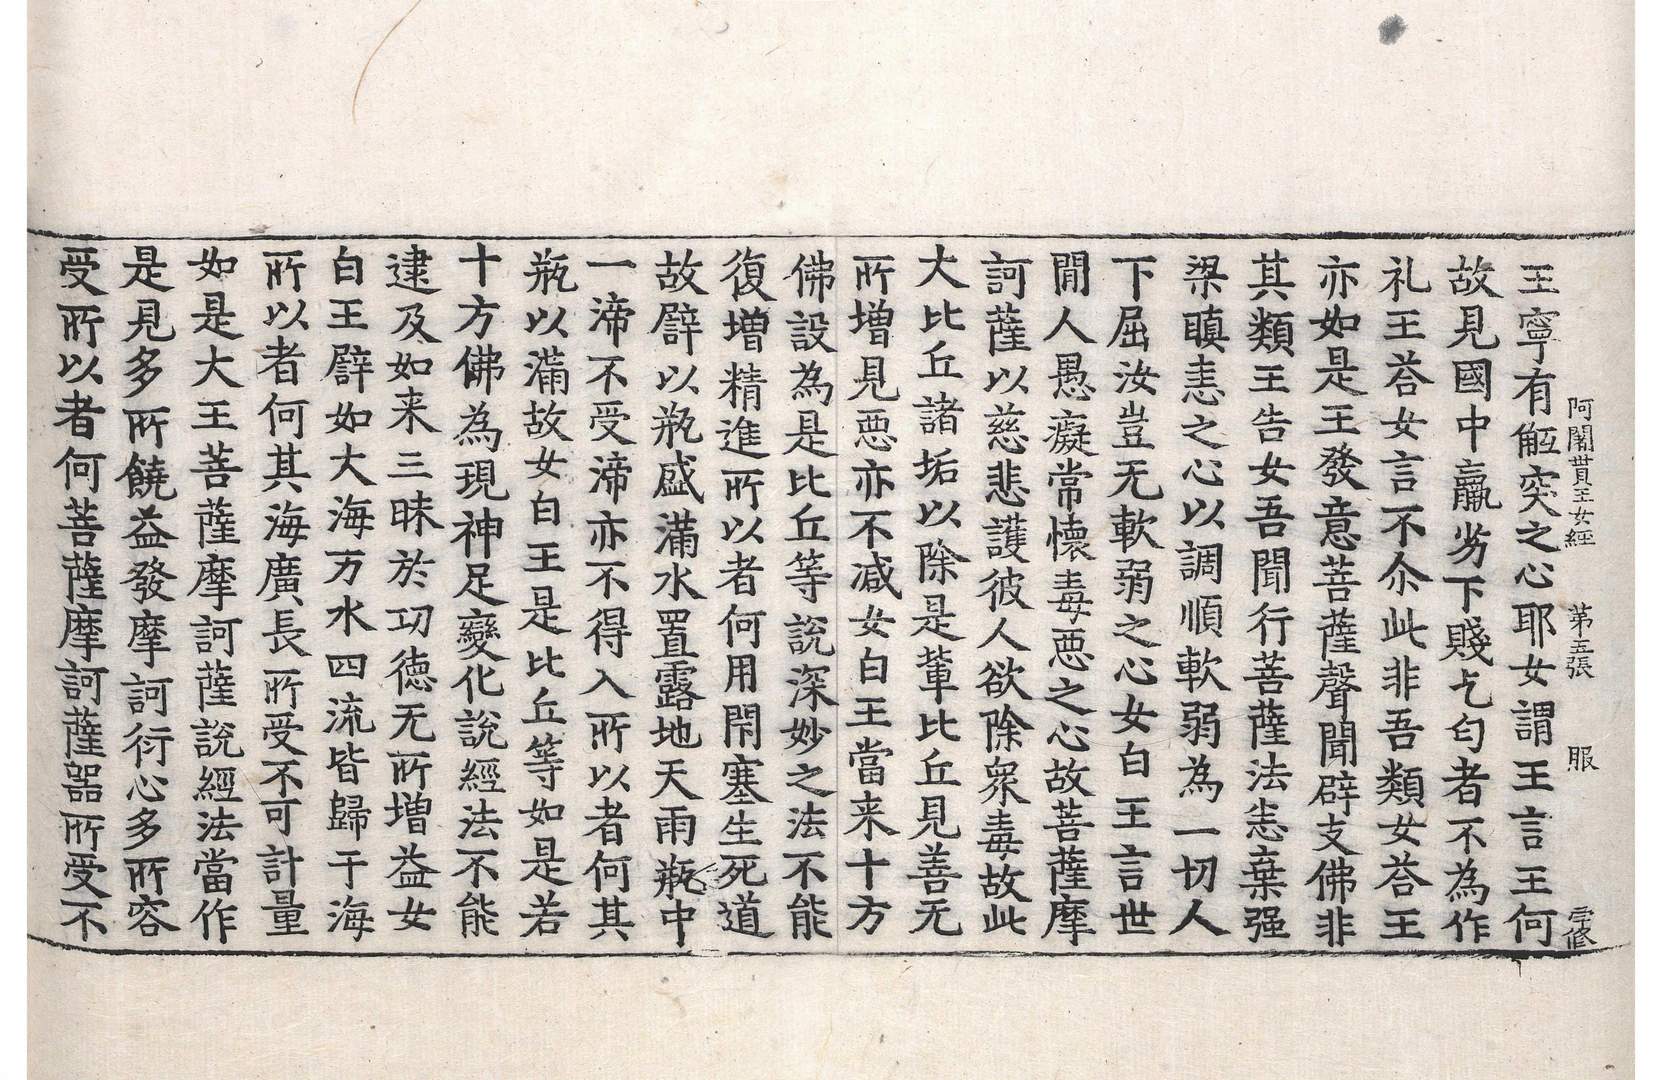 阿闍貰王女經 第五張 服
王寧有觝突之心耶女謂王言王何
故見國中羸劣下賤乞匄者不為作
礼王荅女言不尒此非吾類女荅王
亦如是王發意菩薩聲聞辟支佛非
其類王告女吾聞行菩薩法恚棄强
梁瞋恚之心以調順軟弱為一切人
下屈汝豈无軟弱之心女白王言世
閒人愚癡常懷毒惡之心故菩薩摩
訶薩以慈悲護彼人欲除衆毒故此
大比丘諸垢以除是輩比丘見善无
所增見惡亦不減女白王當来十方
佛設為是比丘等說深妙之法不能
復增精進所以者何用閇塞生死道
故譬以瓶盛滿水置露地天雨瓶中
一渧不受渧亦不得入所以者何其
瓶以滿故女白王是比丘等如是若
十方佛為現神足變化說經法不能
逮及如来三昧於功德无所增益女
白王譬如大海万水四流皆歸于海
所以者何其海廣長所受不可計量
如是大王菩薩摩訶薩說經法當作
是見多所饒益發摩訶衍心多所容
受所以者何菩薩摩訶薩器所受不